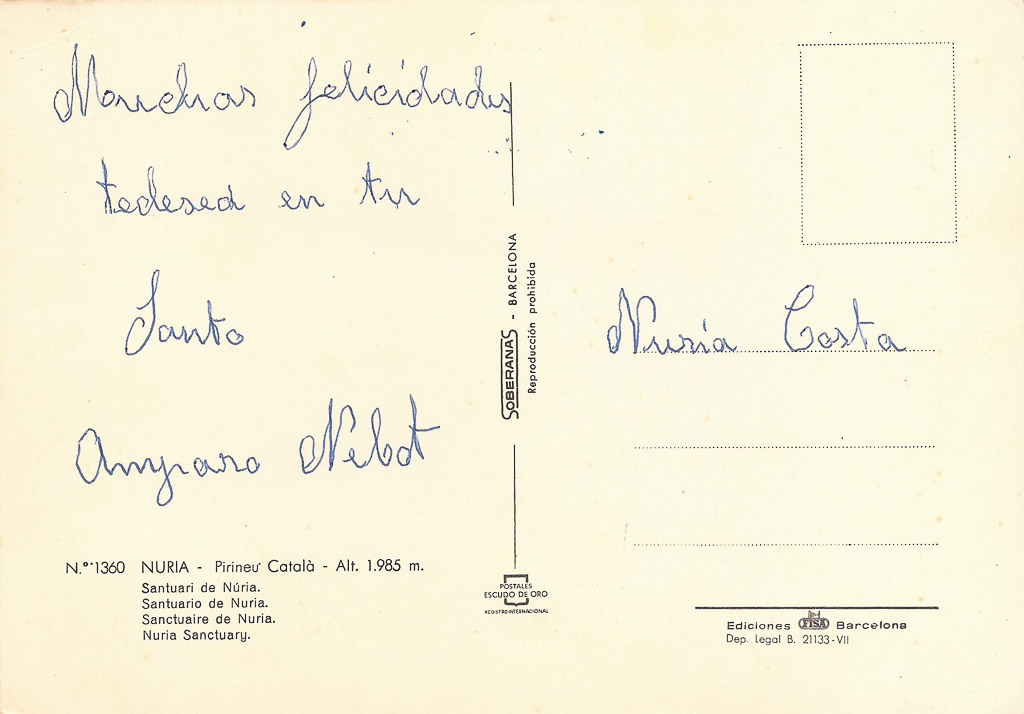 Muchas felicidades
tedesed en tu
Santo
Amparo Nebot
N.º 1360 NURIA - Pirineu Català - Alt. 1.985 m.
Santuari de Núria.
Santuario de Nuria.
Sanctuaire de Nuria.
Nuria Sanctuary.
SOBERANAS - BARCELONA
Reproducción prohibida
POSTALES
ESCUDO DE ORO
REGISTRO INTERNACIONAL
Nuria Costa
Ediciones FISA Barcelona
Dep. legal B. 21133-VII